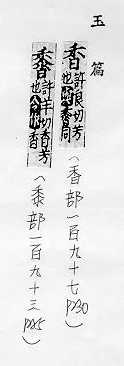 玉篇
香 許切芳也同（香部一百九十七 p230）
許羊切芳也今作香（黍部一百九十三 p225）